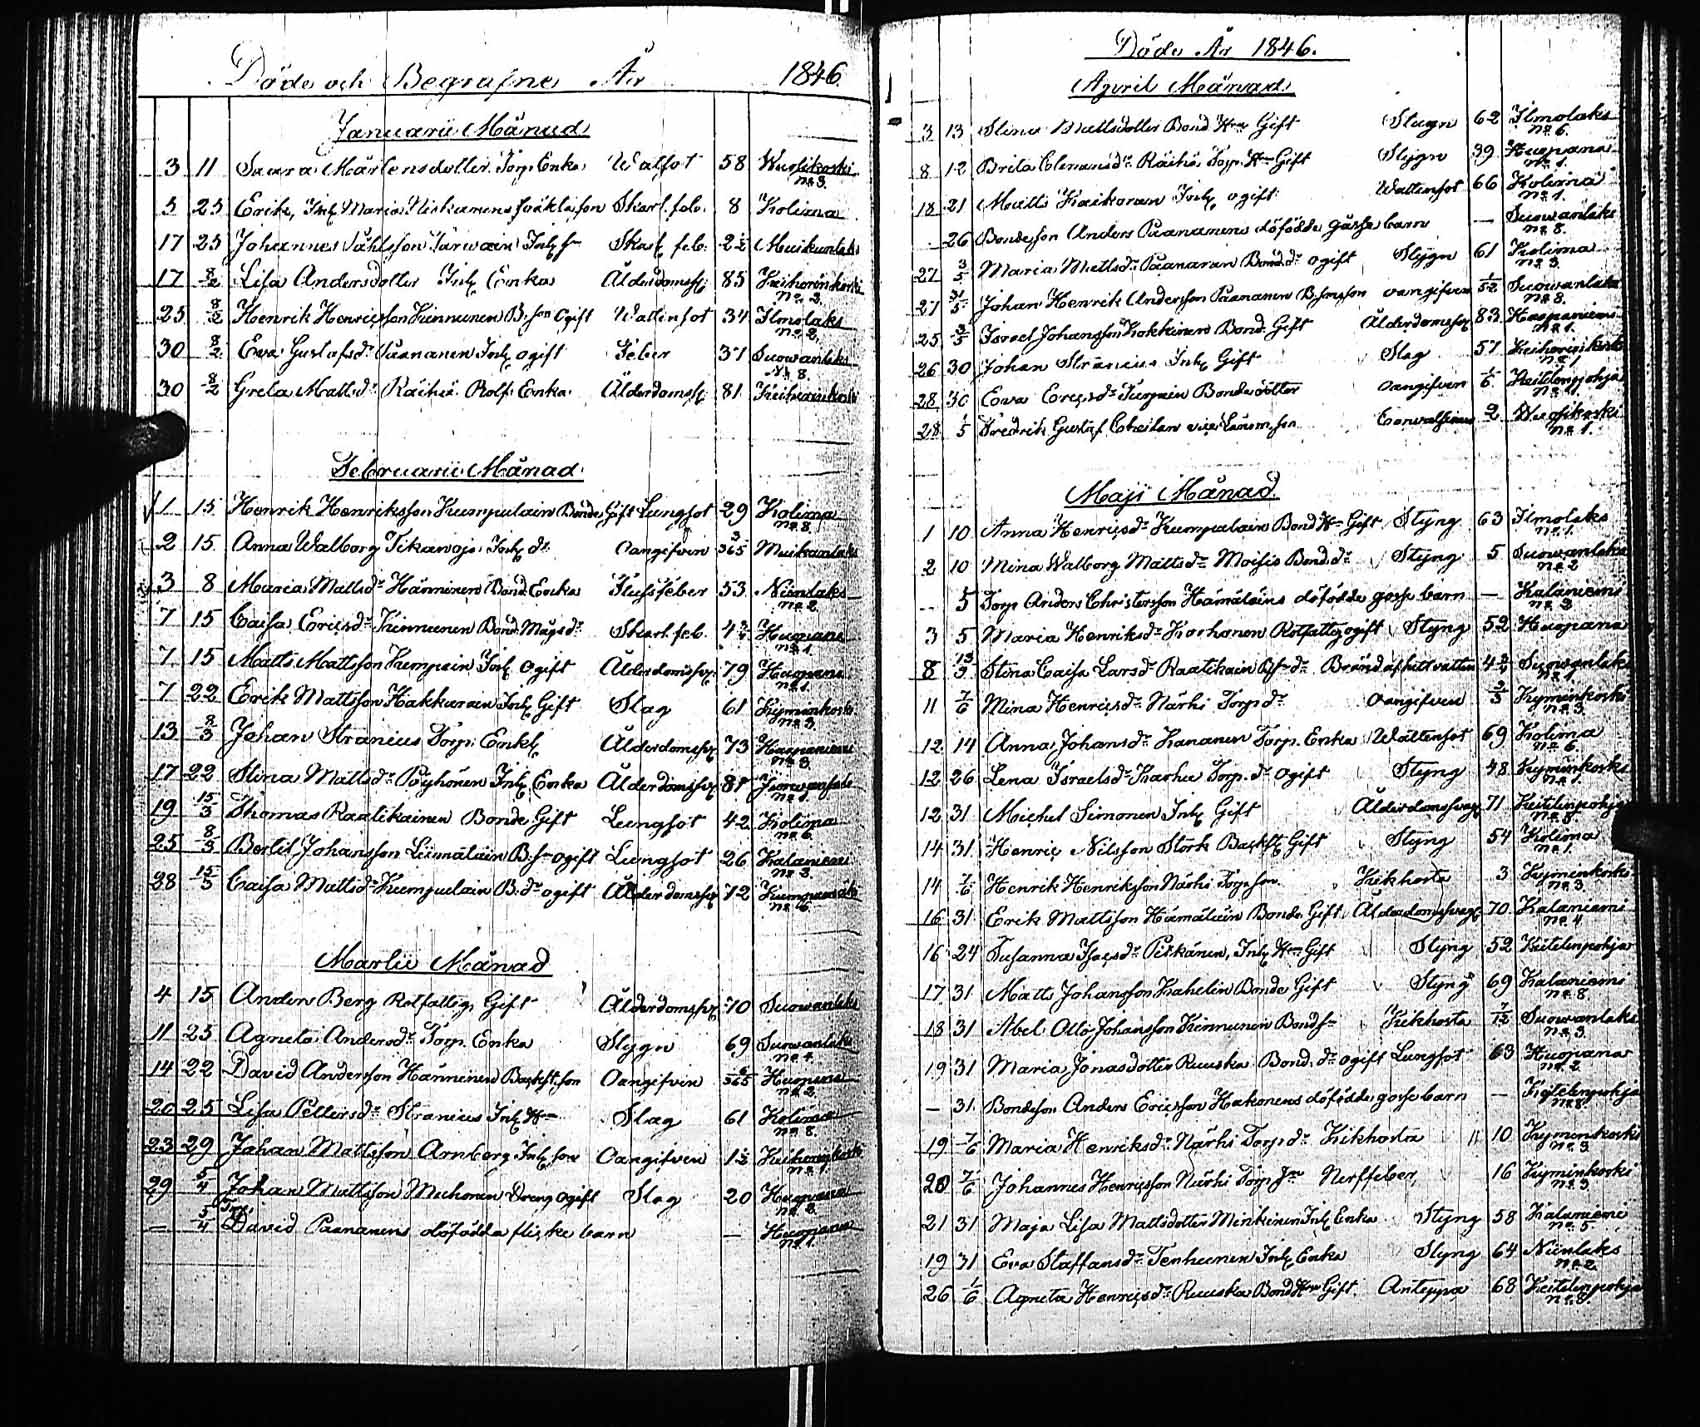 Döde och Begrafne År 1846
Januarii Månad
3 11 Saara Mårtensdotter Torp. Enka Wattsot 58 Wuosikoski
No 3.
5 25 Erik, Inh. Maria Niskanens oäkta son Skarl. feb. 8 Kolima
17 25 Johannes Påhlsson Tarwain Inh. s. Skarl. feb. 2½ Muikunlaks
17 8/2 Lisa Andersdotter Inh. Enka Ålderdomssv. 85 Keihärinkoski
No 3.
25 8/2 Henrik Henricsson Kinnunen B. son Ogift Wattensot 34 Ilmolaks
No 2.
30 8/2 Eva Gustafsdr Paananen Inh. ogift Feber 37 Suowanlaks
No 8.
30 8/2 Greta Mattsdr Räihä Rotf. Enka Ålderdomssv. 81 Keihärinkoski
Februarii Månad
1 15 Henrik Henriksson Kumpulain Bonde Gift Lungsot 29 Kolima
No 8.
2 15 Anna Walborg Tikawoja Inh. dr Oangifven 3/365 Muikunlaks
3 8 Maria Mattsdr Hänninen Bond. Enka Flussfeber 53 Niinilaks
No 2.
7 15 Caisa Ericsdr Kinnunen Bond. Mågs dr Skarl. feb. 4¾ Huopana
No 1.
7 15 Matts Mattsson Kumpain Inh. Ogift Ålderdomssv. 79 Huopana
No 1.
7 22 Erik Mattsson Kakkarain Inh. Gift Slag 61 Kyminkoski
No 3.
13 8/3 Johan Stranius Torp. Enkl. Ålderdomssv. 73 Haapaniemi
No 3.
17 22 Stina Mattsdr Pöyhönen Inh. Enka Ålderdomssv. 81
No 1.
19 15/3 Thomas Raatikainen Bonde Gift Lungsot 42 Kolima
No 6.
25 8/3 Bertil Johansson Liimatain B. sn ogift Lungsot 26 Kalaniemi
No 3.
28 15/3 Caisa Mattsdr Kumpulain B. dr ogift Ålderdomssv. 72
No 6.
Martii Månad
4 15 Anders Berg Rotfattig Gift Ålderdomssv. 70 Suowanlaks
11 25 Agneta Andersdr Torp. Enka Stygn 69 Suowanlaks
No 4.
14 22 David Andersson Hänninen Backst. son Oangifvin /365 Huopana
No 2.
20 25 Lisa Pettersdr Stranius Inh. Hru Slag 61 Kolima
No 8.
23 29 Johan Mattsson Arnberg Inh. son Oangifven 1½ Keihärinkoski
No 1.
29 5/4 Johan Mattsson Muhonen Dreng ogift Slag 20 Huopana
No 3.
— 5/4 Torp. David Paananens dödfödda flicke barn — Huopana
No 1.
Döde År 1846.
Aprill Månad
3 13 Stina Mattsdotter Bond Hru Gift Stygn 62 Ilmolaks
No 6.
8 12 Brita Clemensdr Räihä Torp. Hru Gift Stygn 39 Huopana
No 1.
18 21 Matts Kaikoran Inh. ogift Wattensot 66 Kolima
No 1.
26 Bondeson Anders Paananens dödfödda gosse barn — Suowanlaks
No 8.
27 3/5 Maria Mattsdr Paananen Bond. dr ogift Stygn 61 Kolima
No 3.
27 31/5 Johan Henrik Andersson Paananen B. sonson oangifven 1/52 Suowanlaks
No 8.
25 3/5 Israel Johansson Kokkinen Bond. Gift Ålderdomssv. 83 Haapaniemi
No 1.
26 30 Johan Stranius Inh. Gift Slag 57 Keihärinkoski
No 1.
28 30 Eva Ericsdr Turpein Bondedotter oangifven 1/6 Keitelenpohja
No 1.
28 5 Fredrik Gustaf vice Länsm. son Convulsioner 2 Wuosikoski
No 1.
Maji Månad
1 10 Anna Henricsdr Kumpulain Bond Hru Gift Styng 63 Ilmolaks
No 1.
2 10 Mina Walborg Mattsdr Moisio Bond. dr Styng 5 Suowanlaks
No 2
5 Torp. Anders Christersson Hämäläins dödfödda gosse barn — Kalaniemi
No 3
3 5 Maria Henriksdr Korhonen Rotfattig ogift Styng 52 Huopana
8 13/3 Stina Caisa Larsdr Raatikain B. s. dr Bränd af hett vatten 4¾ Suowanlaks
No 1.
11 7/6 Mina Henricsdr Närhi Torp. dr oangifven 2/3 Kyminkoski
No 3.
12 14 Anna Johansdr Kananen Torp. Enka Wattensot 69 Kolima
No 6.
12 26 Lena Israelsdr Karhu Torp. dr ogift Styng 48 Kyminkoski
No 1.
12 31 Michel Simonen Inh. Gift Ålderdomssvag. 71 Keitelenpohja
No 8
14 31 Henric Nilsson Stork Backst. Gift Styng 54 Kolima
No 1.
14 7/6 Henrik Henriksson Närhi Torp. son Kikhosta 3 Kyminkoski
No 3.
16 31 Erik Mattsson Hämäläin Bonde Gift Ålderdomssvag. 70 Kalaniemi
No 4
16 24 Susanna Isacsdr Piskänen, Inh. Hru Gift Styng 52 Keitelenpohja
17 31 Matts Johansson Kahelin Bonde Gift Styng 69 Kalaniemi
No 8.
18 31 Abel Otto Johansson Kinnunen Bond. sn Kikhosta 7/12 Suowanlaks
No 3.
19 31 Maria Jonasdotter Ruuska Bond. dr ogift Lungsot 63 Huopana
No 2.
— 31. Bondeson Anders Ericsson Hakonens dödfödda gosse barn — Keitelenpohja
No 8.
19 7/6 Maria Henriksdr Närhi Torp. dr Kikhosta 10 Kyminkoski
No 3
20 7/6 Johannes Henricsson Närhi Torp. sn Nerffeber 16 Kyminkoski
No 3.
21 31 Maja Lisa Mattsdotter Minkinen Inh. Enka Styng 58 Kalaniemi
No 5
19 31 Eva Staffansdr Tenhunen Inh. Enka Styng 64 Niinilaks
No 2.
26 1/6 Agneta Henricsdr Ruuska Bond Hru Gift Anteppa 68 Keitelenpohja
No 8.